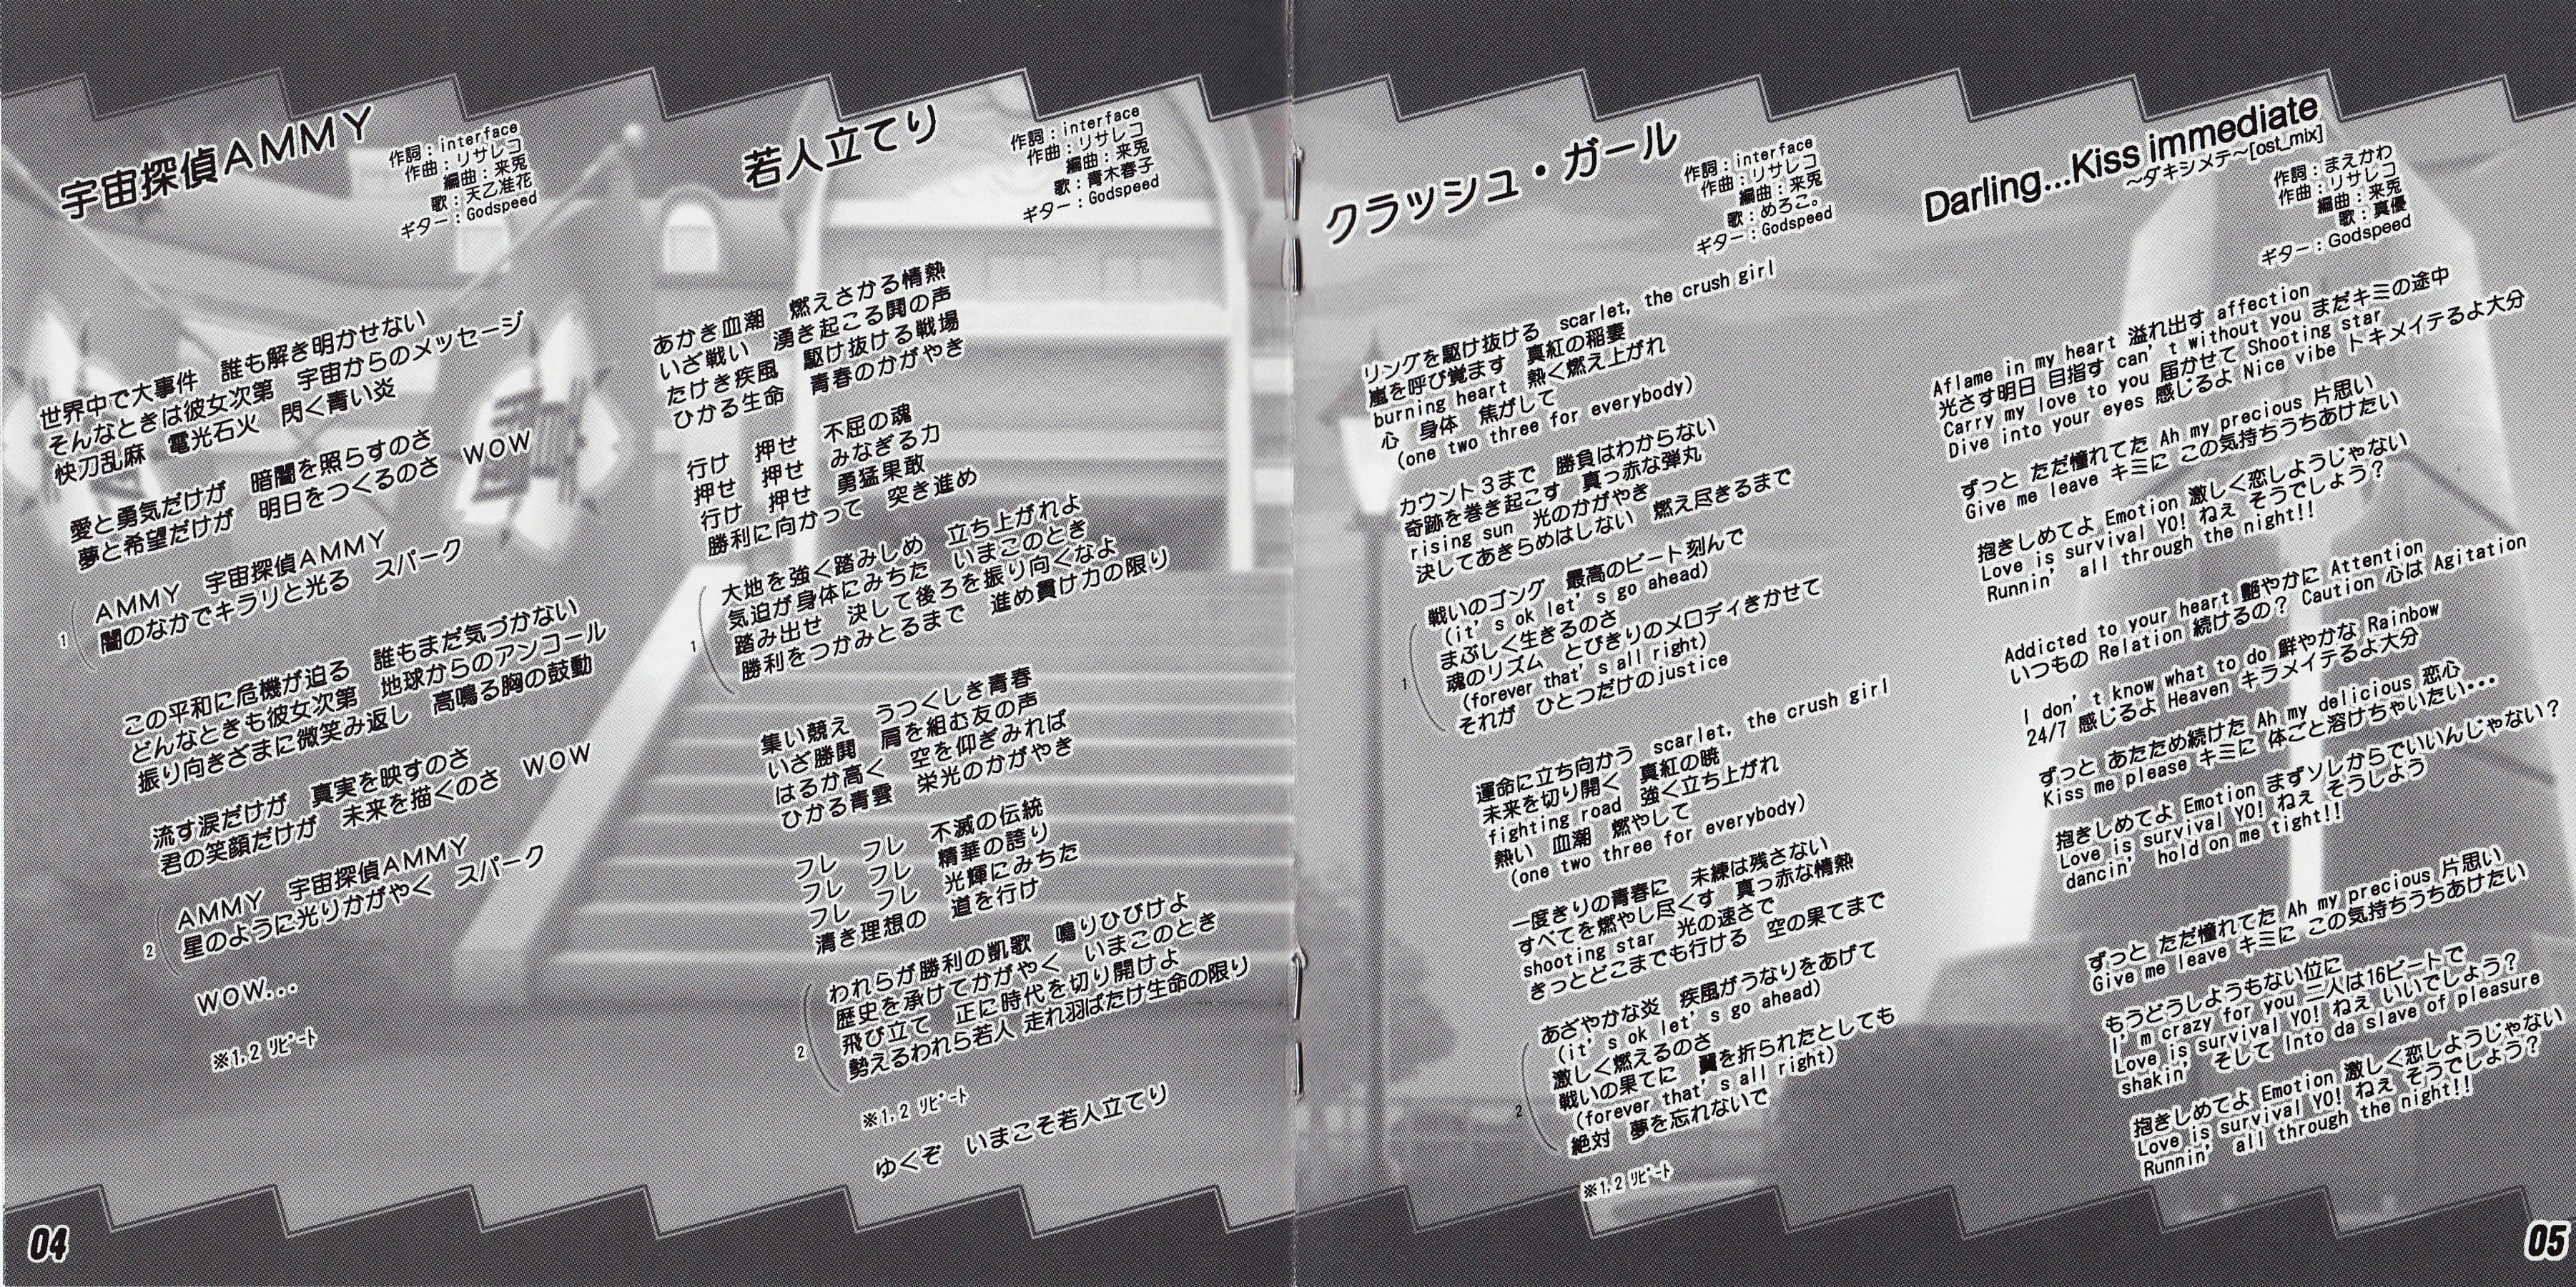 宇宙探偵ＡＭＭＹ
作詞：interface
作曲：リサレコ
編曲：来兎
歌：天乙准花
ギター：Godspeed
世界中で大事件　誰も解き明かせない
そんなときは彼女次第　宇宙からのメッセージ
快刀乱麻　電光石火　閃く青い炎
愛と勇気だけが　暗闇を照らすのさ
夢と希望だけが　明日をつくるのさ　ＷＯＷ
1
ＡＭＭＹ　宇宙探偵ＡＭＭＹ
闇のなかでキラリと光る　スパーク
この平和に危機が迫る　誰もまだ気づかない
どんなときも彼女次第　地球からのアンコール
振り向きざまに微笑み返し　高鳴る胸の鼓動
流す涙だけが　真実を映すのさ
君の笑顔だけが　未来を描くのさ　ＷＯＷ
2
ＡＭＭＹ　宇宙探偵ＡＭＭＹ
星のように光りかがやく　スパーク
ＷＯＷ...
※1,2 ﾘﾋﾟｰﾄ
若人立てり
作詞：interface
作曲：リサレコ
編曲：来兎
歌：青木春子
ギター：Godspeed
あかき血潮　燃えさかる情熱
いざ戦い　湧き起こる鬨の声
たけき疾風　駆け抜ける戦場
ひかる生命　青春のかがやき
行け　押せ　不屈の魂
押せ　押せ　みなぎる力
行け　押せ　勇猛果敢
勝利に向かって　突き進め
1
大地を強く踏みしめ　立ち上がれよ
気迫が身体にみちた　いまこのとき
踏み出せ　決して後ろを振り向くなよ
勝利をつかみとるまで　進め貫け力の限り
集い競え　うつくしき青春
いざ勝鬨　肩を組む友の声
はるか高く　空を仰ぎみれば
ひかる青雲　栄光のかがやき
フレ　フレ　不滅の伝統
フレ　フレ　精華の誇り
フレ　フレ　光輝にみちた
清き理想の　道を行け
2
われらが勝利の凱歌　鳴りひびけよ
歴史を承けてかがやく　いまこのとき
飛び立て　正に時代を切り開けよ
勢えるわれら若人 走れ羽ばたけ生命の限り
※1,2 ﾘﾋﾟｰﾄ
ゆくぞ　いまこそ若人立てり
04
クラッシュ・ガール
作詞：interface
作曲：リサレコ
編曲：来兎
歌：めろこ。
ギター：Godspeed
リングを駆け抜ける　scarlet, the crush girl
嵐を呼び覚ます　真紅の稲妻
burning heart　熱く燃え上がれ
心　身体　焦がして
(one two three for everybody)
カウント３まで　勝負はわからない
奇跡を巻き起こす　真っ赤な弾丸
rising sun　光のかがやき
決してあきらめはしない　燃え尽きるまで
1
戦いのゴング　最高のビート刻んで
(it's ok let's go ahead)
まぶしく生きるのさ
魂のリズム　とびきりのメロディきかせて
(forever that's all right)
それが　ひとつだけのjustice
運命に立ち向かう　scarlet, the crush girl
未来を切り開く　真紅の暁
fighting road　強く立ち上がれ
熱い　血潮　燃やして
(one two three for everybody)
一度きりの青春に　未練は残さない
すべてを燃やし尽くす　真っ赤な情熱
shooting star　光の速さで
きっとどこまでも行ける　空の果てまで
2
あざやかな炎　疾風がうなりをあげて
(it's ok let's go ahead)
激しく燃えるのさ
戦いの果てに　翼を折られたとしても
(forever that's all right)
絶対　夢を忘れないで
※1,2 ﾘﾋﾟｰﾄ
Darling...Kiss immediate
～ダキシメテ～[ost_mix]
作詞：まえかわ
作曲：リサレコ
編曲：来兎
歌：真優
ギター：Godspeed
Aflame in my heart 溢れ出す affection
光さす明日 目指す can't without you まだキミの途中
Carry my love to you 届かせて Shooting star
Dive into your eyes 感じるよ Nice vibe トキメイテるよ大分
ずっと ただ憧れてた Ah my precious 片思い
Give me leave キミに この気持ちうちあけたい
抱きしめてよ Emotion 激しく恋しようじゃない
Love is survival YO! ねぇ そうでしょう？
Runnin' all through the night!!
Addicted to your heart 艶やかに Attention
いつもの Relation 続けるの？ Caution 心は Agitation
I don't know what to do 鮮やかな Rainbow
24/7 感じるよ Heaven キラメイテるよ大分
ずっと あたため続けた Ah my delicious 恋心
Kiss me please キミに 体ごと溶けちゃいたい・・・
抱きしめてよ Emotion まずソレからでいいんじゃない？
Love is survival YO! ねぇ そうしよう
dancin' hold on me tight!!
ずっと ただ憧れてた Ah my precious 片思い
Give me leave キミに この気持ちうちあけたい
もうどうしようもない位に
I'm crazy for you 二人は16ビートで
Love is survival YO! ねぇ いいでしょう？
shakin' そして Into da slave of pleasure
抱きしめてよ Emotion 激しく恋しようじゃない
Love is survival YO! ねぇ そうでしょう？
Runnin' all through the night!!
05